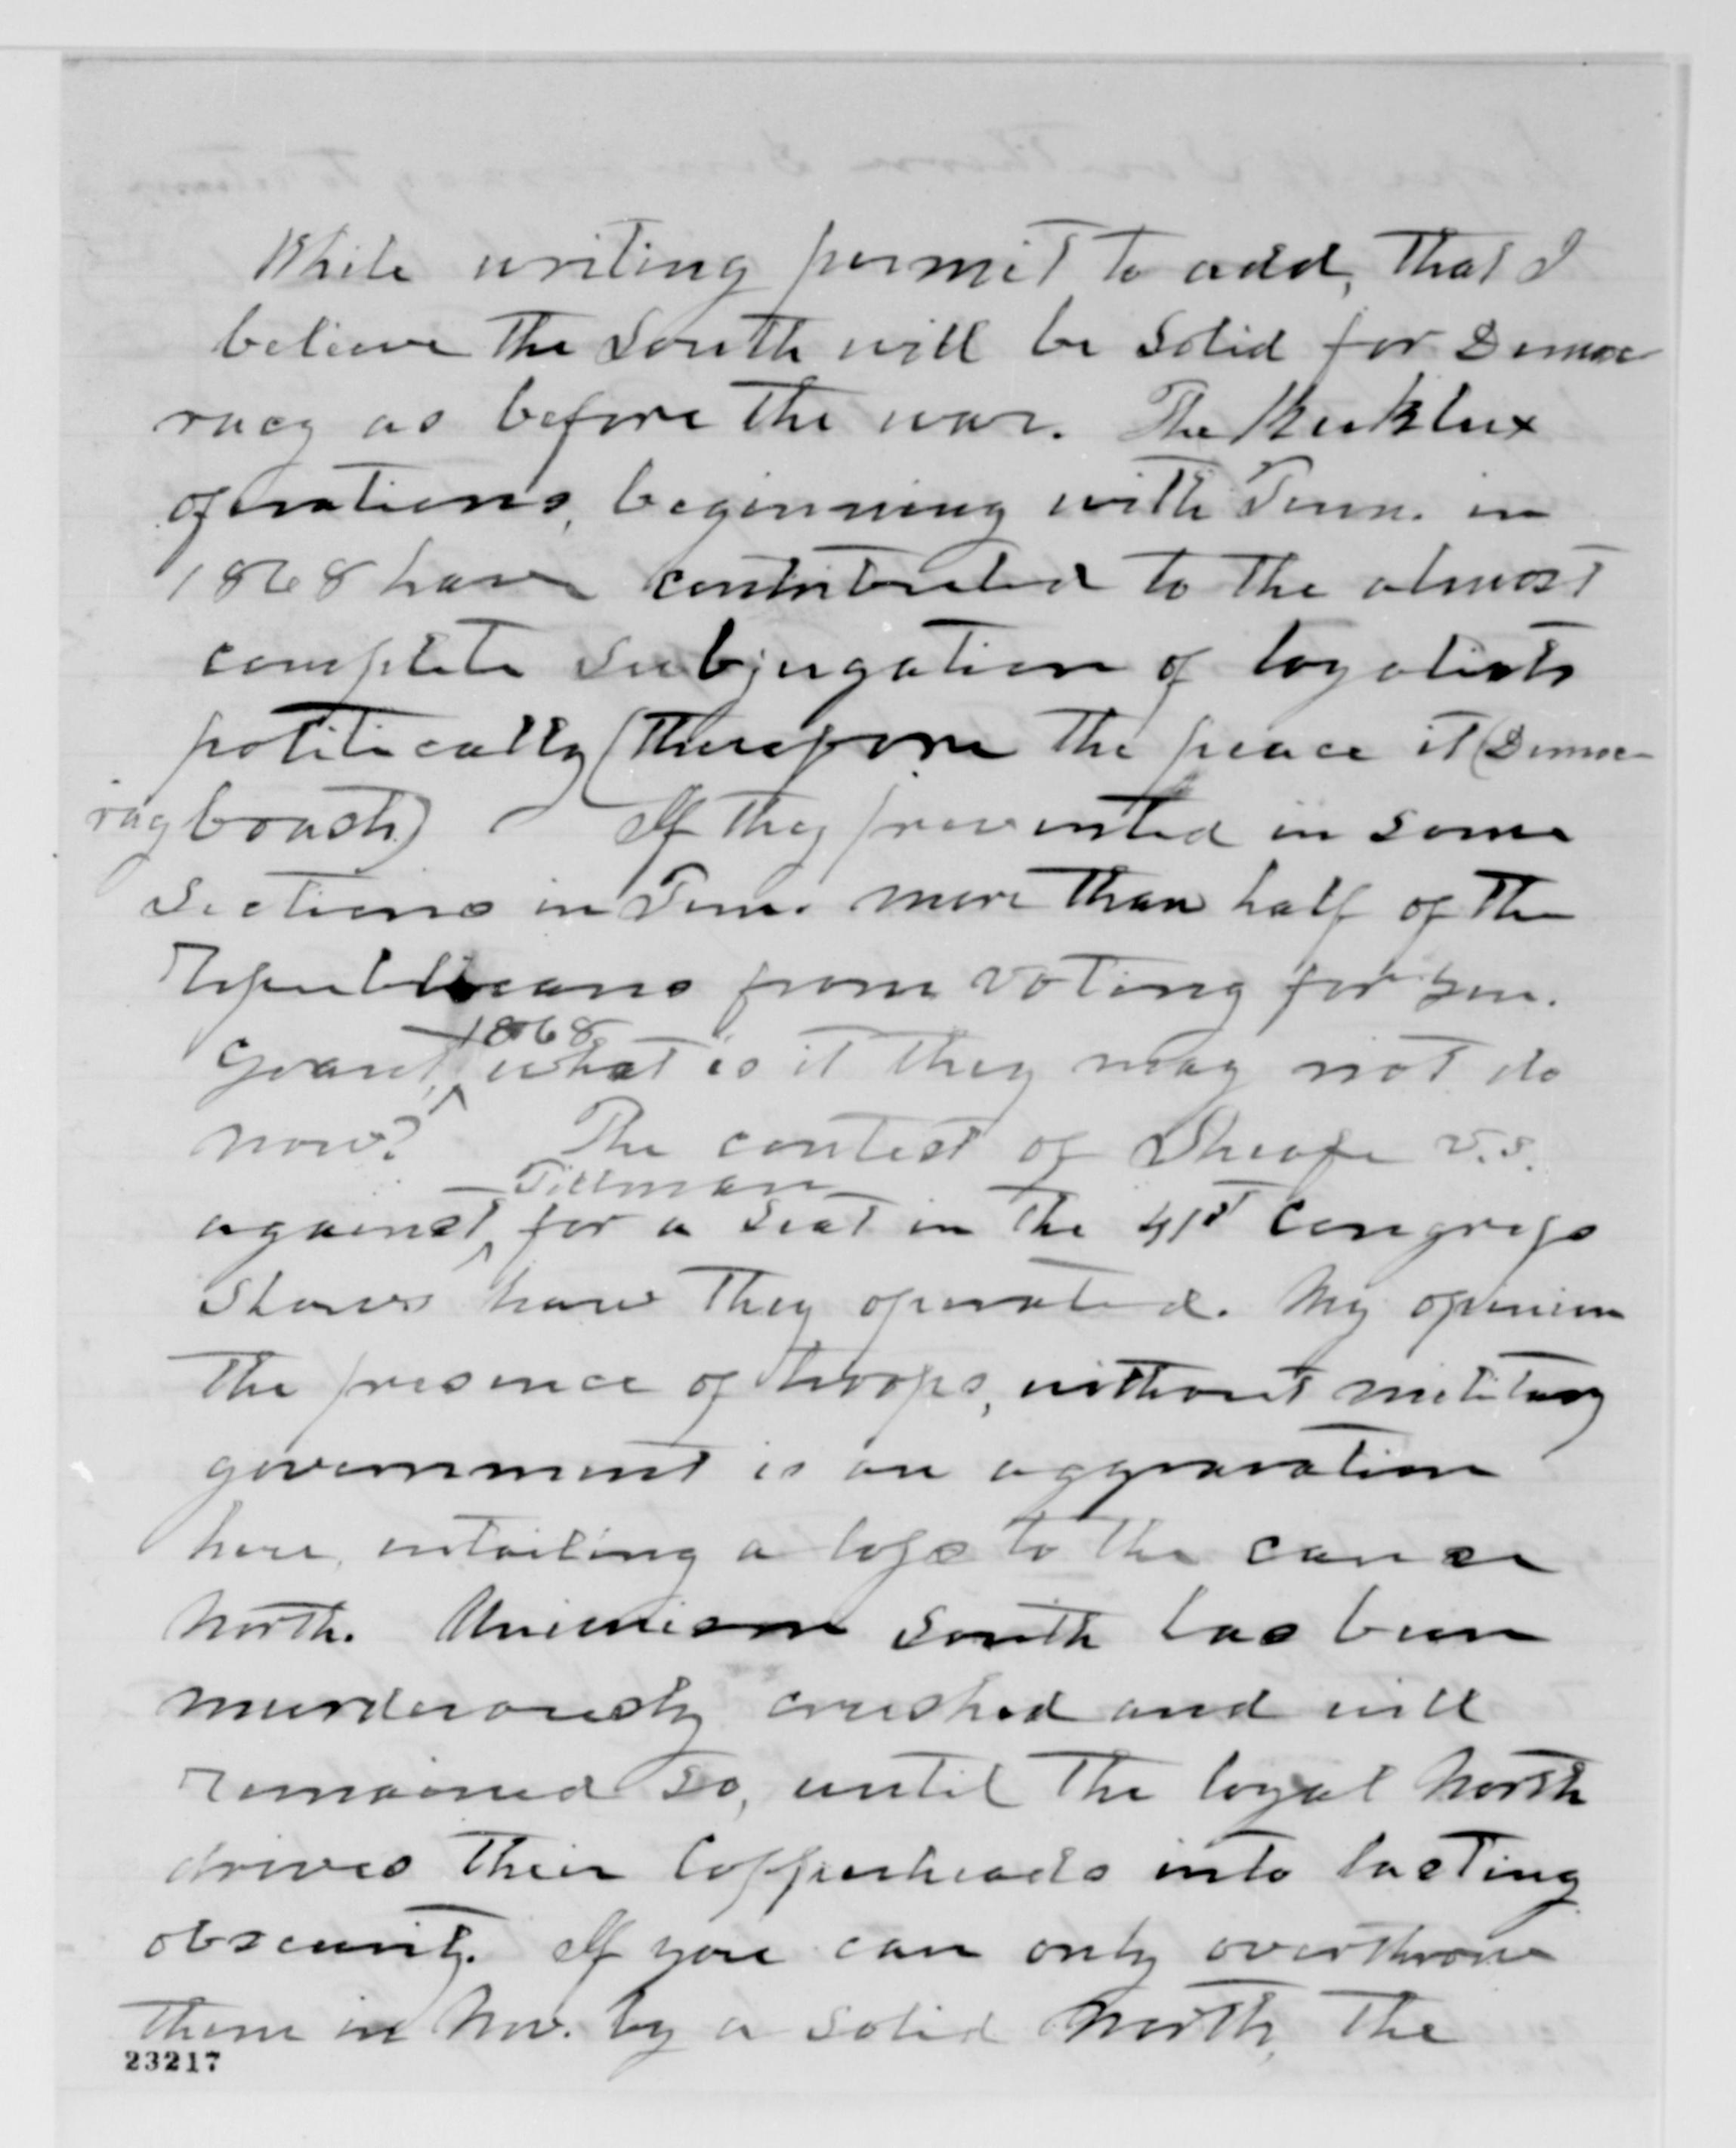 While writing permit to add, that I
believe the South will be solid for Democ-
racy as before the war. The Kuklux
operations, beginning with Tenn. in
1868 have contributed to the almost
complete subjugation of loyalists
politically (therefore the peace it (Democ-
racy boasts)
If they prevented in some
sections in Tenn. more than half of the
Republicans from voting for Gen.
1868
Grant, ^ what is it they may not do
now? The contest of Sheafe v.s.
Tillman
against ^ for a seat in the 41st Congress
shows how they operated. My opinion
the presence of troops, without military
government is an aggravation
here, entailing a loss to the cause
North. Unionism South has been
murderously crushed and will
remained so, until the loyal North
drives their Copperheads into lasting
obscurity. If you can only overthrow
them in Nov. by a solid North, the
23217